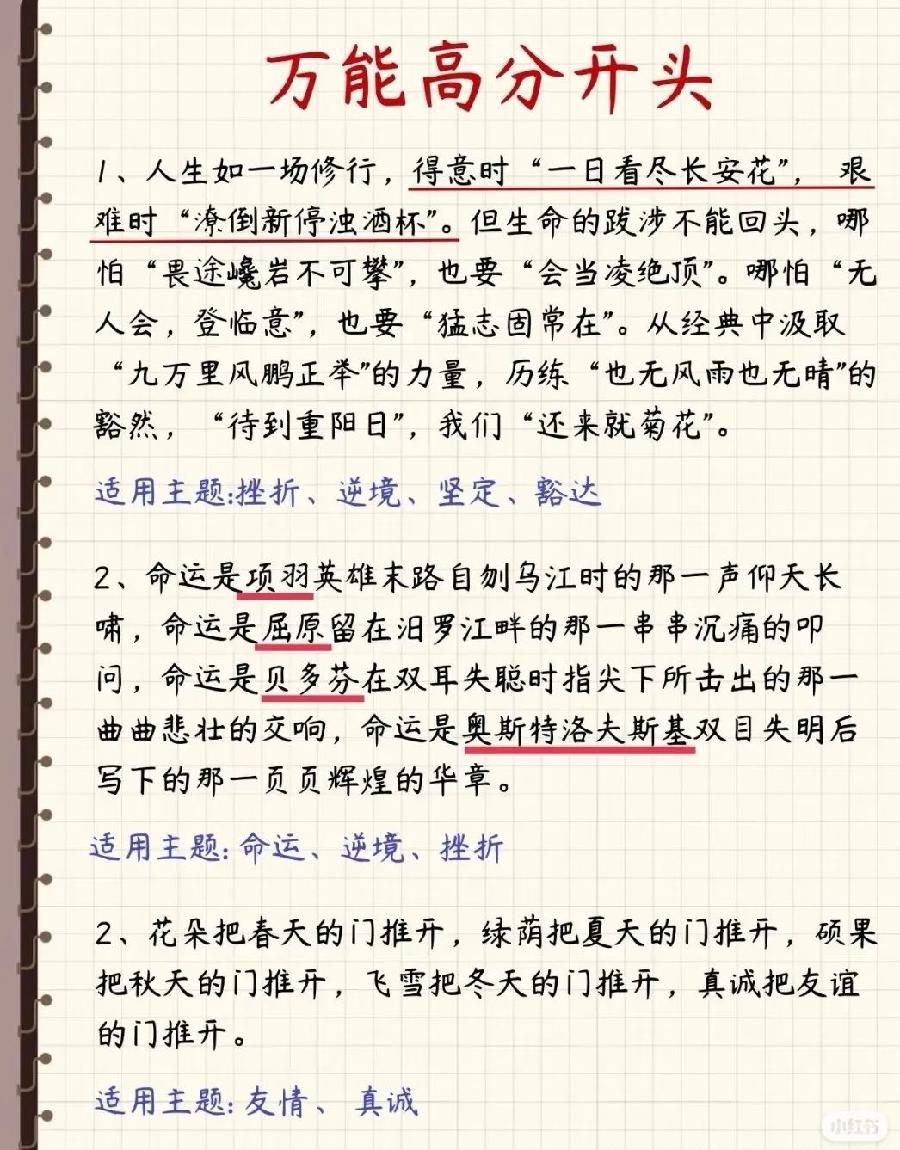 万能高分开头
1、人生如一场修行，得意时“一日看尽长安花”， 艰
难时“潦倒新停浊酒杯”。但生命的跋涉不能回头，哪
怕“畏途巉岩不可攀”，也要“会当凌绝顶”。哪怕“无
人会，登临意”，也要“猛志固常在”。从经典中汲取
“九万里风鹏正举”的力量，历练“也无风雨也无晴”的
豁然，“待到重阳日”，我们“还来就菊花”。
适用主题:挫折、逆境、坚定、豁达
2、命运是项羽英雄末路自刎乌江时的那一声仰天长
啸，命运是屈原留在汨罗江畔的那一串串沉痛的叩
问，命运是贝多芬在双耳失聪时指尖下所击出的那一
曲曲悲壮的交响，命运是奥斯特洛夫斯基双目失明后
写下的那一页页辉煌的华章。
适用主题:命运、逆境、挫折
2、花朵把春天的门推开，绿荫把夏天的门推开，硕果
把秋天的门推开，飞雪把冬天的门推开，真诚把友谊
的门推开。
适用主题:友情、 真诚
小红书